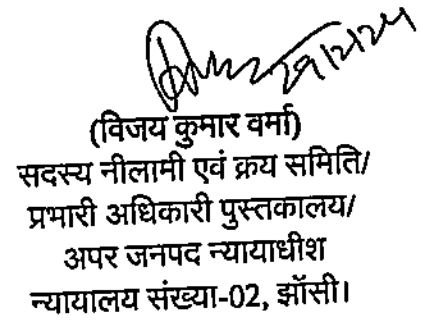 (विजय कुमार वर्मा)
सदस्य नीलामी एवं क्रय समिति/
प्रभारी अधिकारी पुस्तकालय/
अपर जनपद न्यायाधीश
न्यायालय संख्या-02, झॉसी।